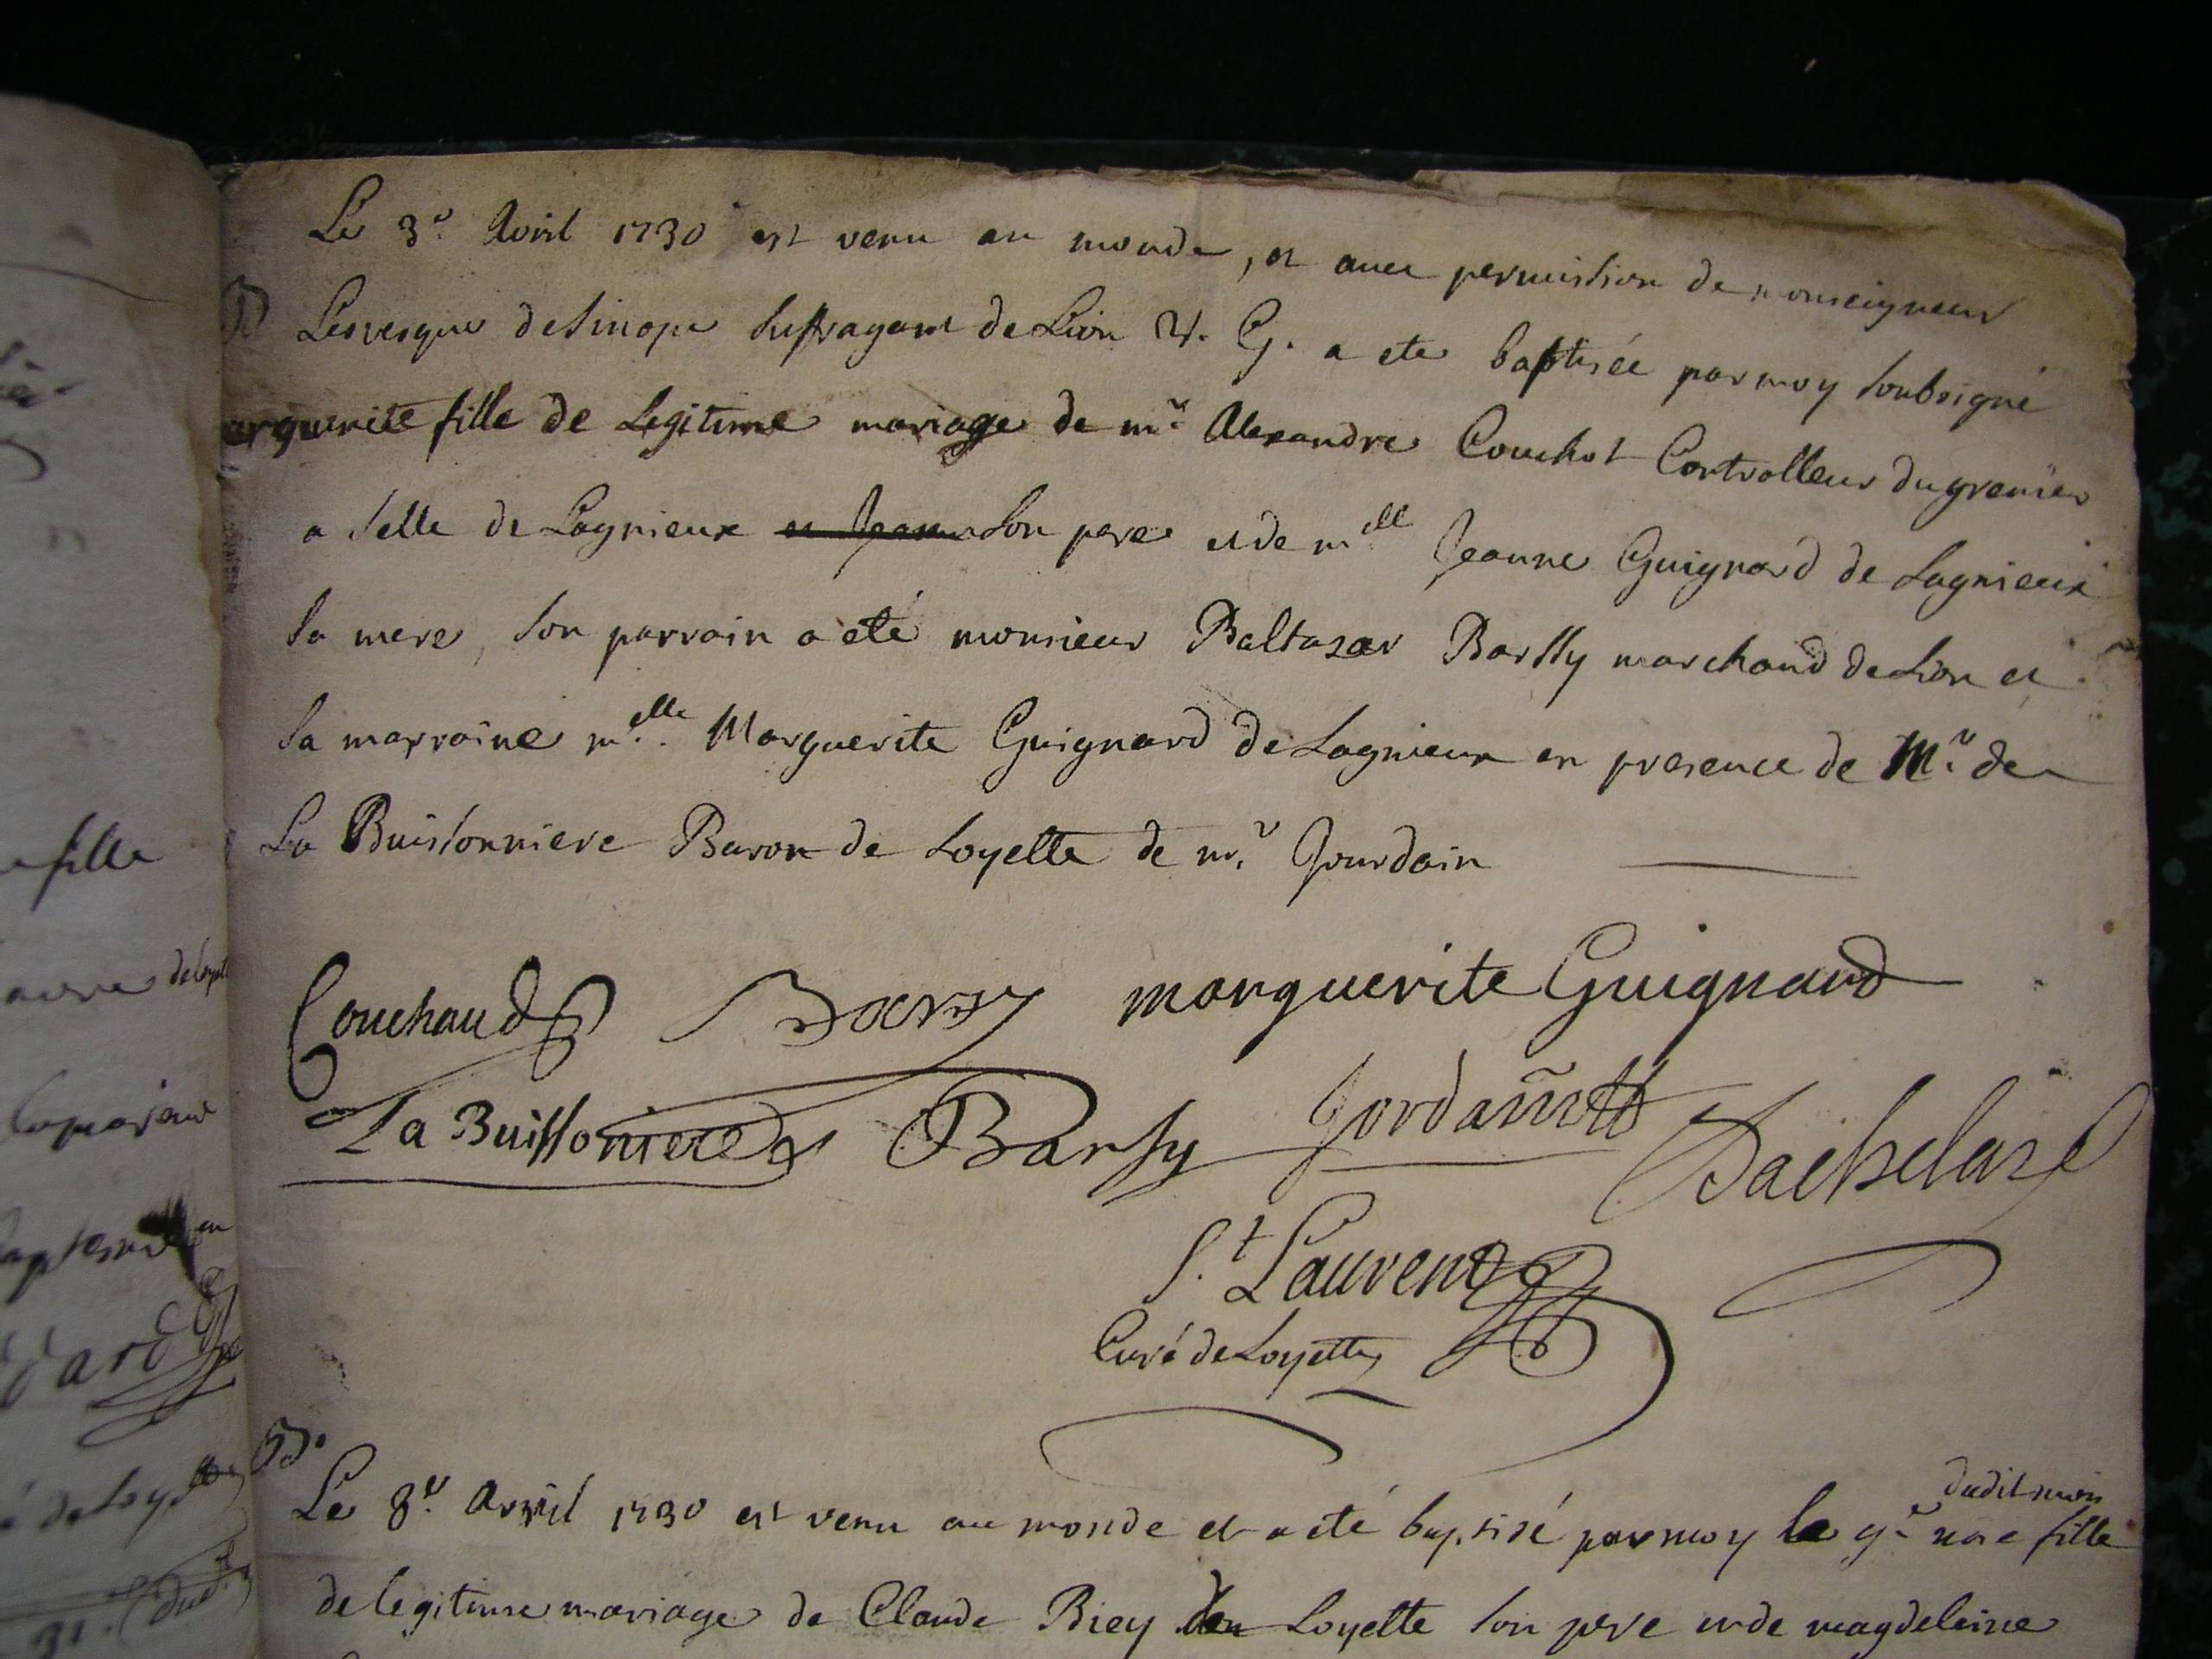 Le 3e. Avril 1730 est venu au monde, et avec permission de monseigneur
Lesvesque de Sinope suffragant de Lion V. G. a ete baptisée par moy soubsigné
arguerite fille de Legitime mariage de mr. Alexandre Couchot Controlleur du grenier
a selle de Lagnieux et Jeanne son pere et de mlle Jeanne Guignard de Lagnieux
sa mere, son parrain a eté monsieur Baltasar Barssy marchand de Lion et
sa marraine melle. Marguerite Guignard de Lagnieux en presence de Mr. de
La Buissonniere Baron de Loyette de mr. Jourdain
Couchaud Barsy marguerite Guignard
La Buissoniere Barsy
S.t Laurent
Curé de Loyettes
dudit mois
Le 8e. Avril 1730 est venu au monde et a eté baptisé par moy le 9e née fille
de legitime mariage de Claude Biey de Loyette son pere et de magdeleine
fille